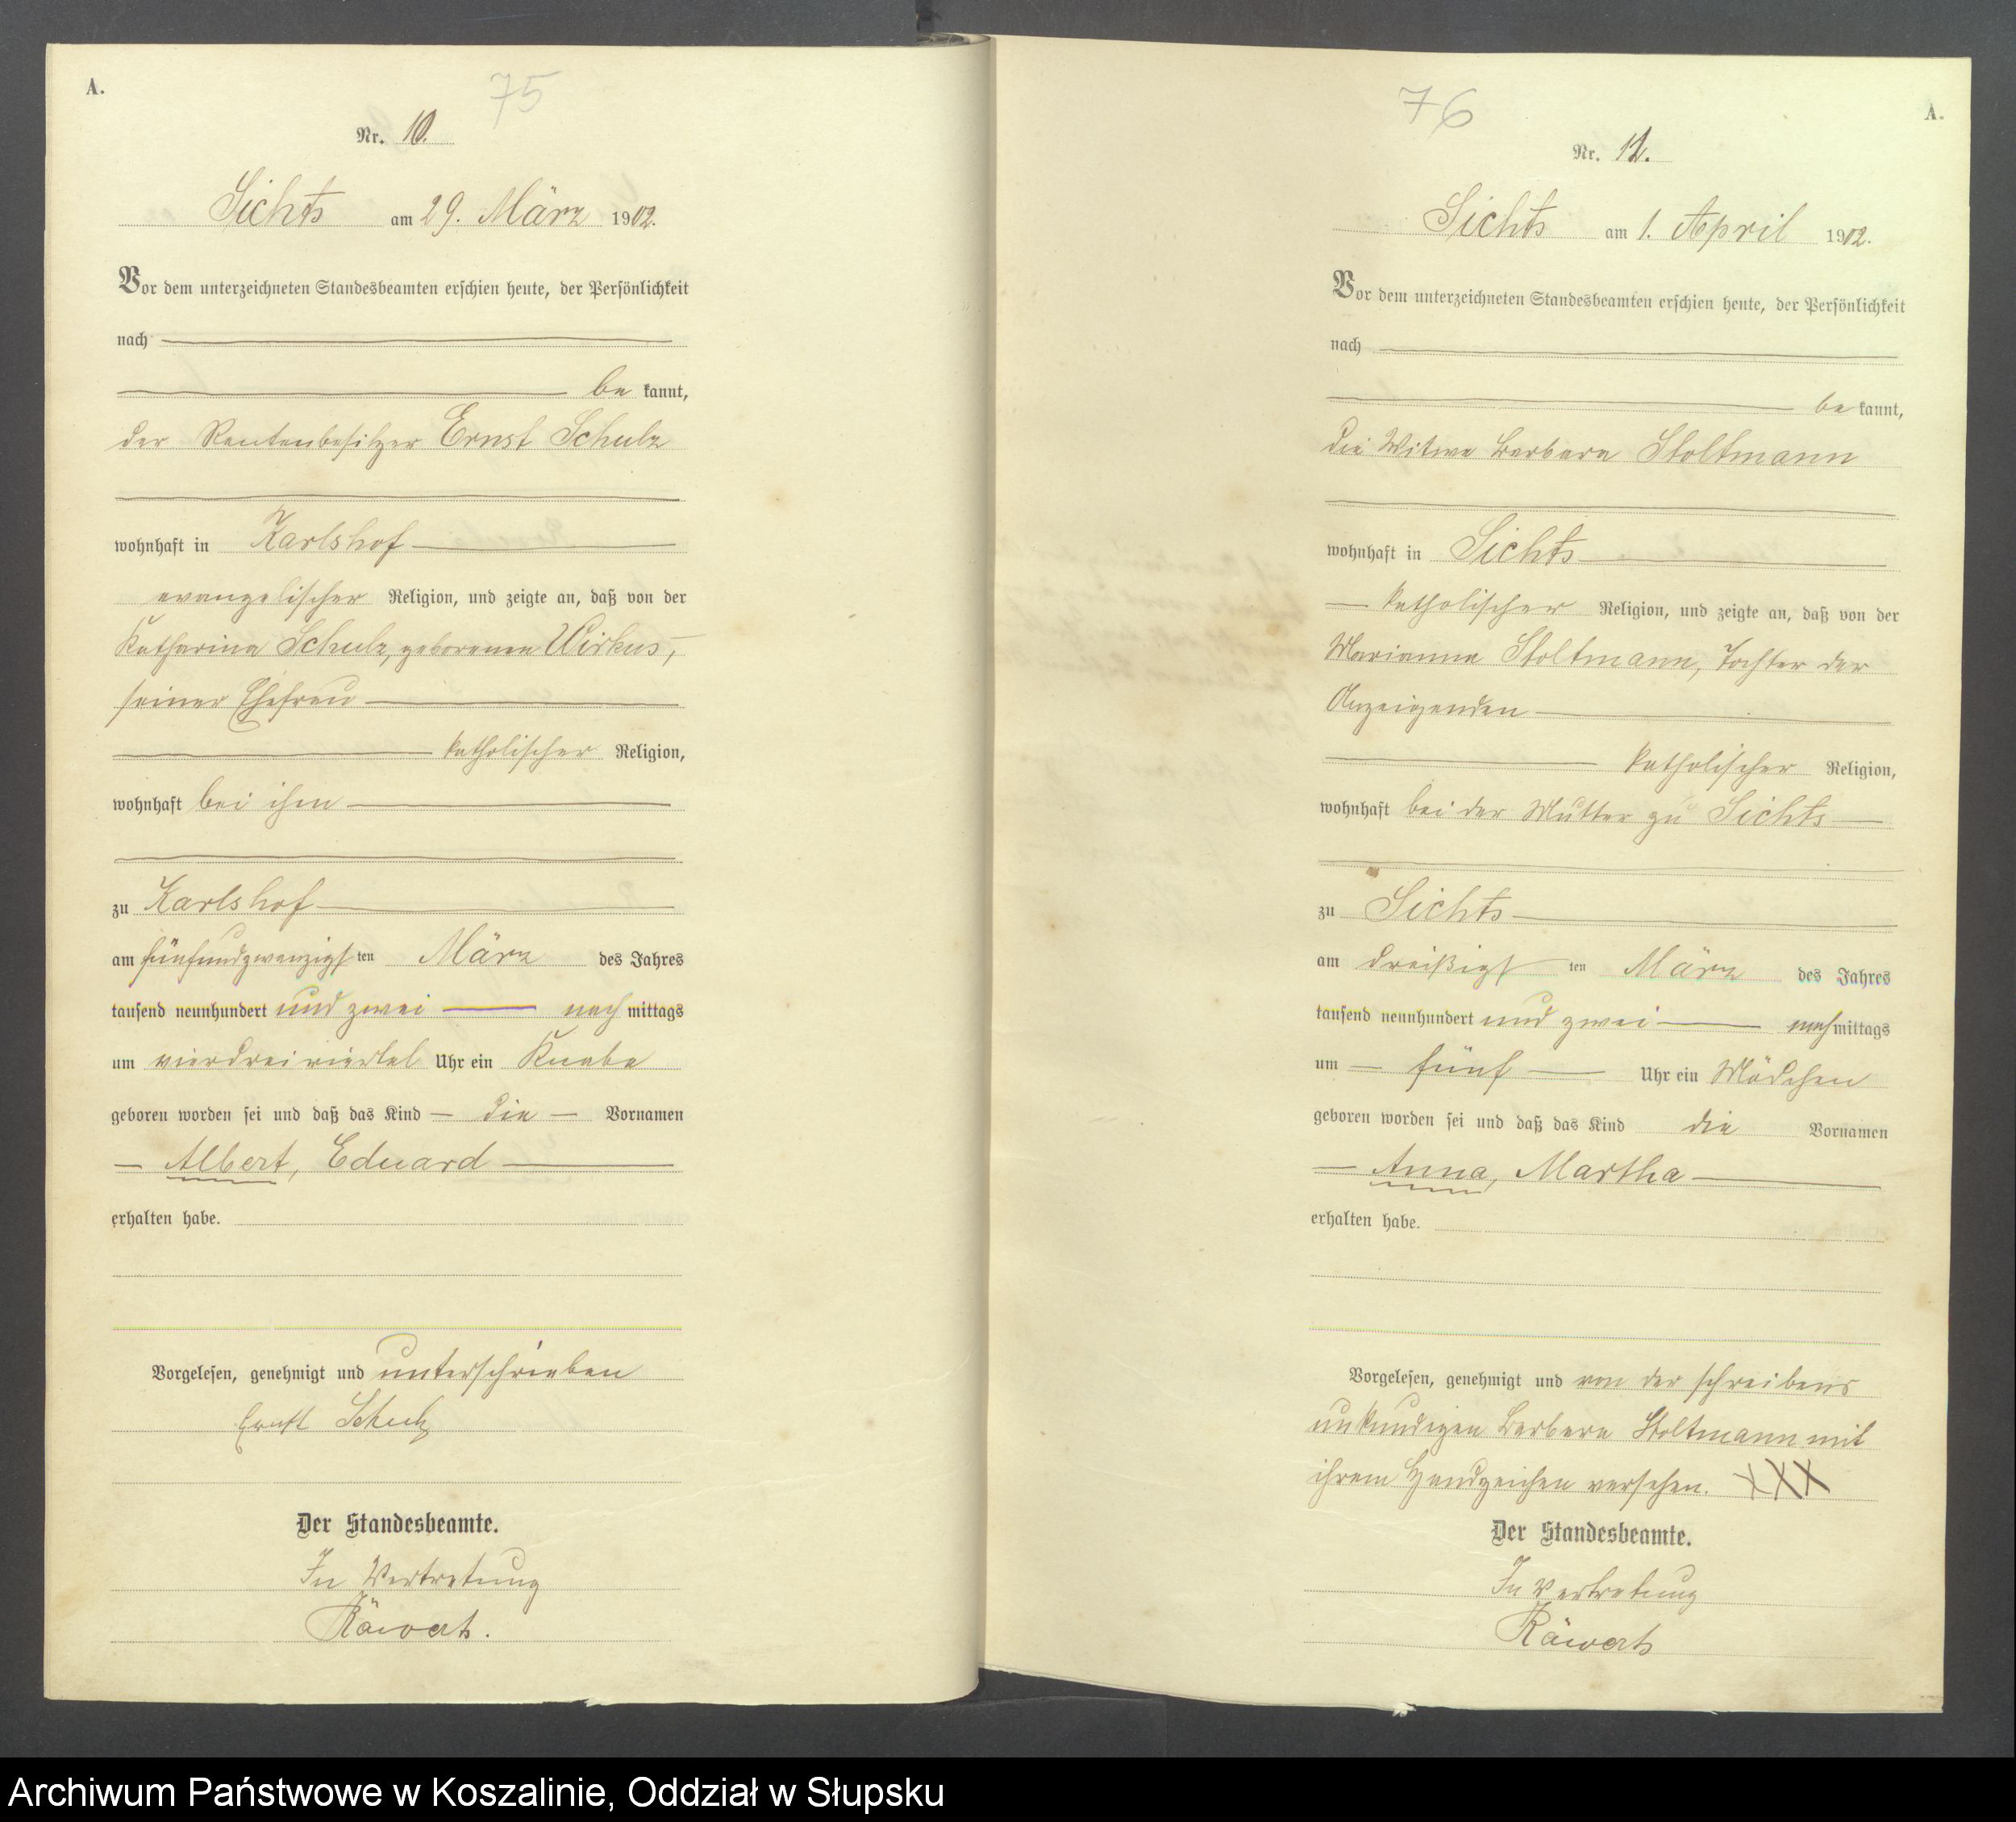 A.
75
Nr. 10.
Sichts am 29. März 1902.
Vor dem unterzeichneten Standesbeamten erschien heute, der Persönlichkeit
nach
be kannt,
der Rentenbesitzer Ernst Schulz
wohnhaft in Karlshof
evangelischer Religion, und zeigte an, daß von der
Katharina Schulz, geborenen Wirkus,
seiner Ehefrau
katholischer Religion,
wohnhaft bei ihm
zu Karlshof
am fünfundzwanzigsten März des Jahres
tausend neunhundert und zwei nachmittags
um vierdreiviertel Uhr ein Knabe
geboren worden sei und daß das Kind die Vornamen
Albert, Eduard
erhalten habe.
Vorgelesen, genehmigt und unterschrieben
Ernst Schulz
Der Standesbeamte.
In Vertretung
Räwerts.
76
A.
Nr. 11.
Sichts am 1. April 1902.
Vor dem unterzeichneten Standesbeamten erschien heute, der Persönlichkeit
nach
be kannt,
die Witwe Barbara Stoltmann
wohnhaft in Sichts
katholischer Religion, und zeigte an, daß von der
Marianna Stoltmann, Tochter der
Anzeigenden
katholischer Religion,
wohnhaft bei der Mutter zu Sichts
zu Sichts
am dreißigsten März des Jahres
tausend neunhundert und zwei nachmittags
um fünf Uhr ein Mädchen
geboren worden sei und daß das Kind die Vornamen
Anna, Martha
erhalten habe.
Vorgelesen, genehmigt und von der schreibens
unkundigen Barbara Stoltmann mit
ihrem Handzeichen versehen. XXX
Der Standesbeamte.
In Vertretung
Räwerts
Archiwum Państwowe w Koszalinie, Oddział w Słupsku